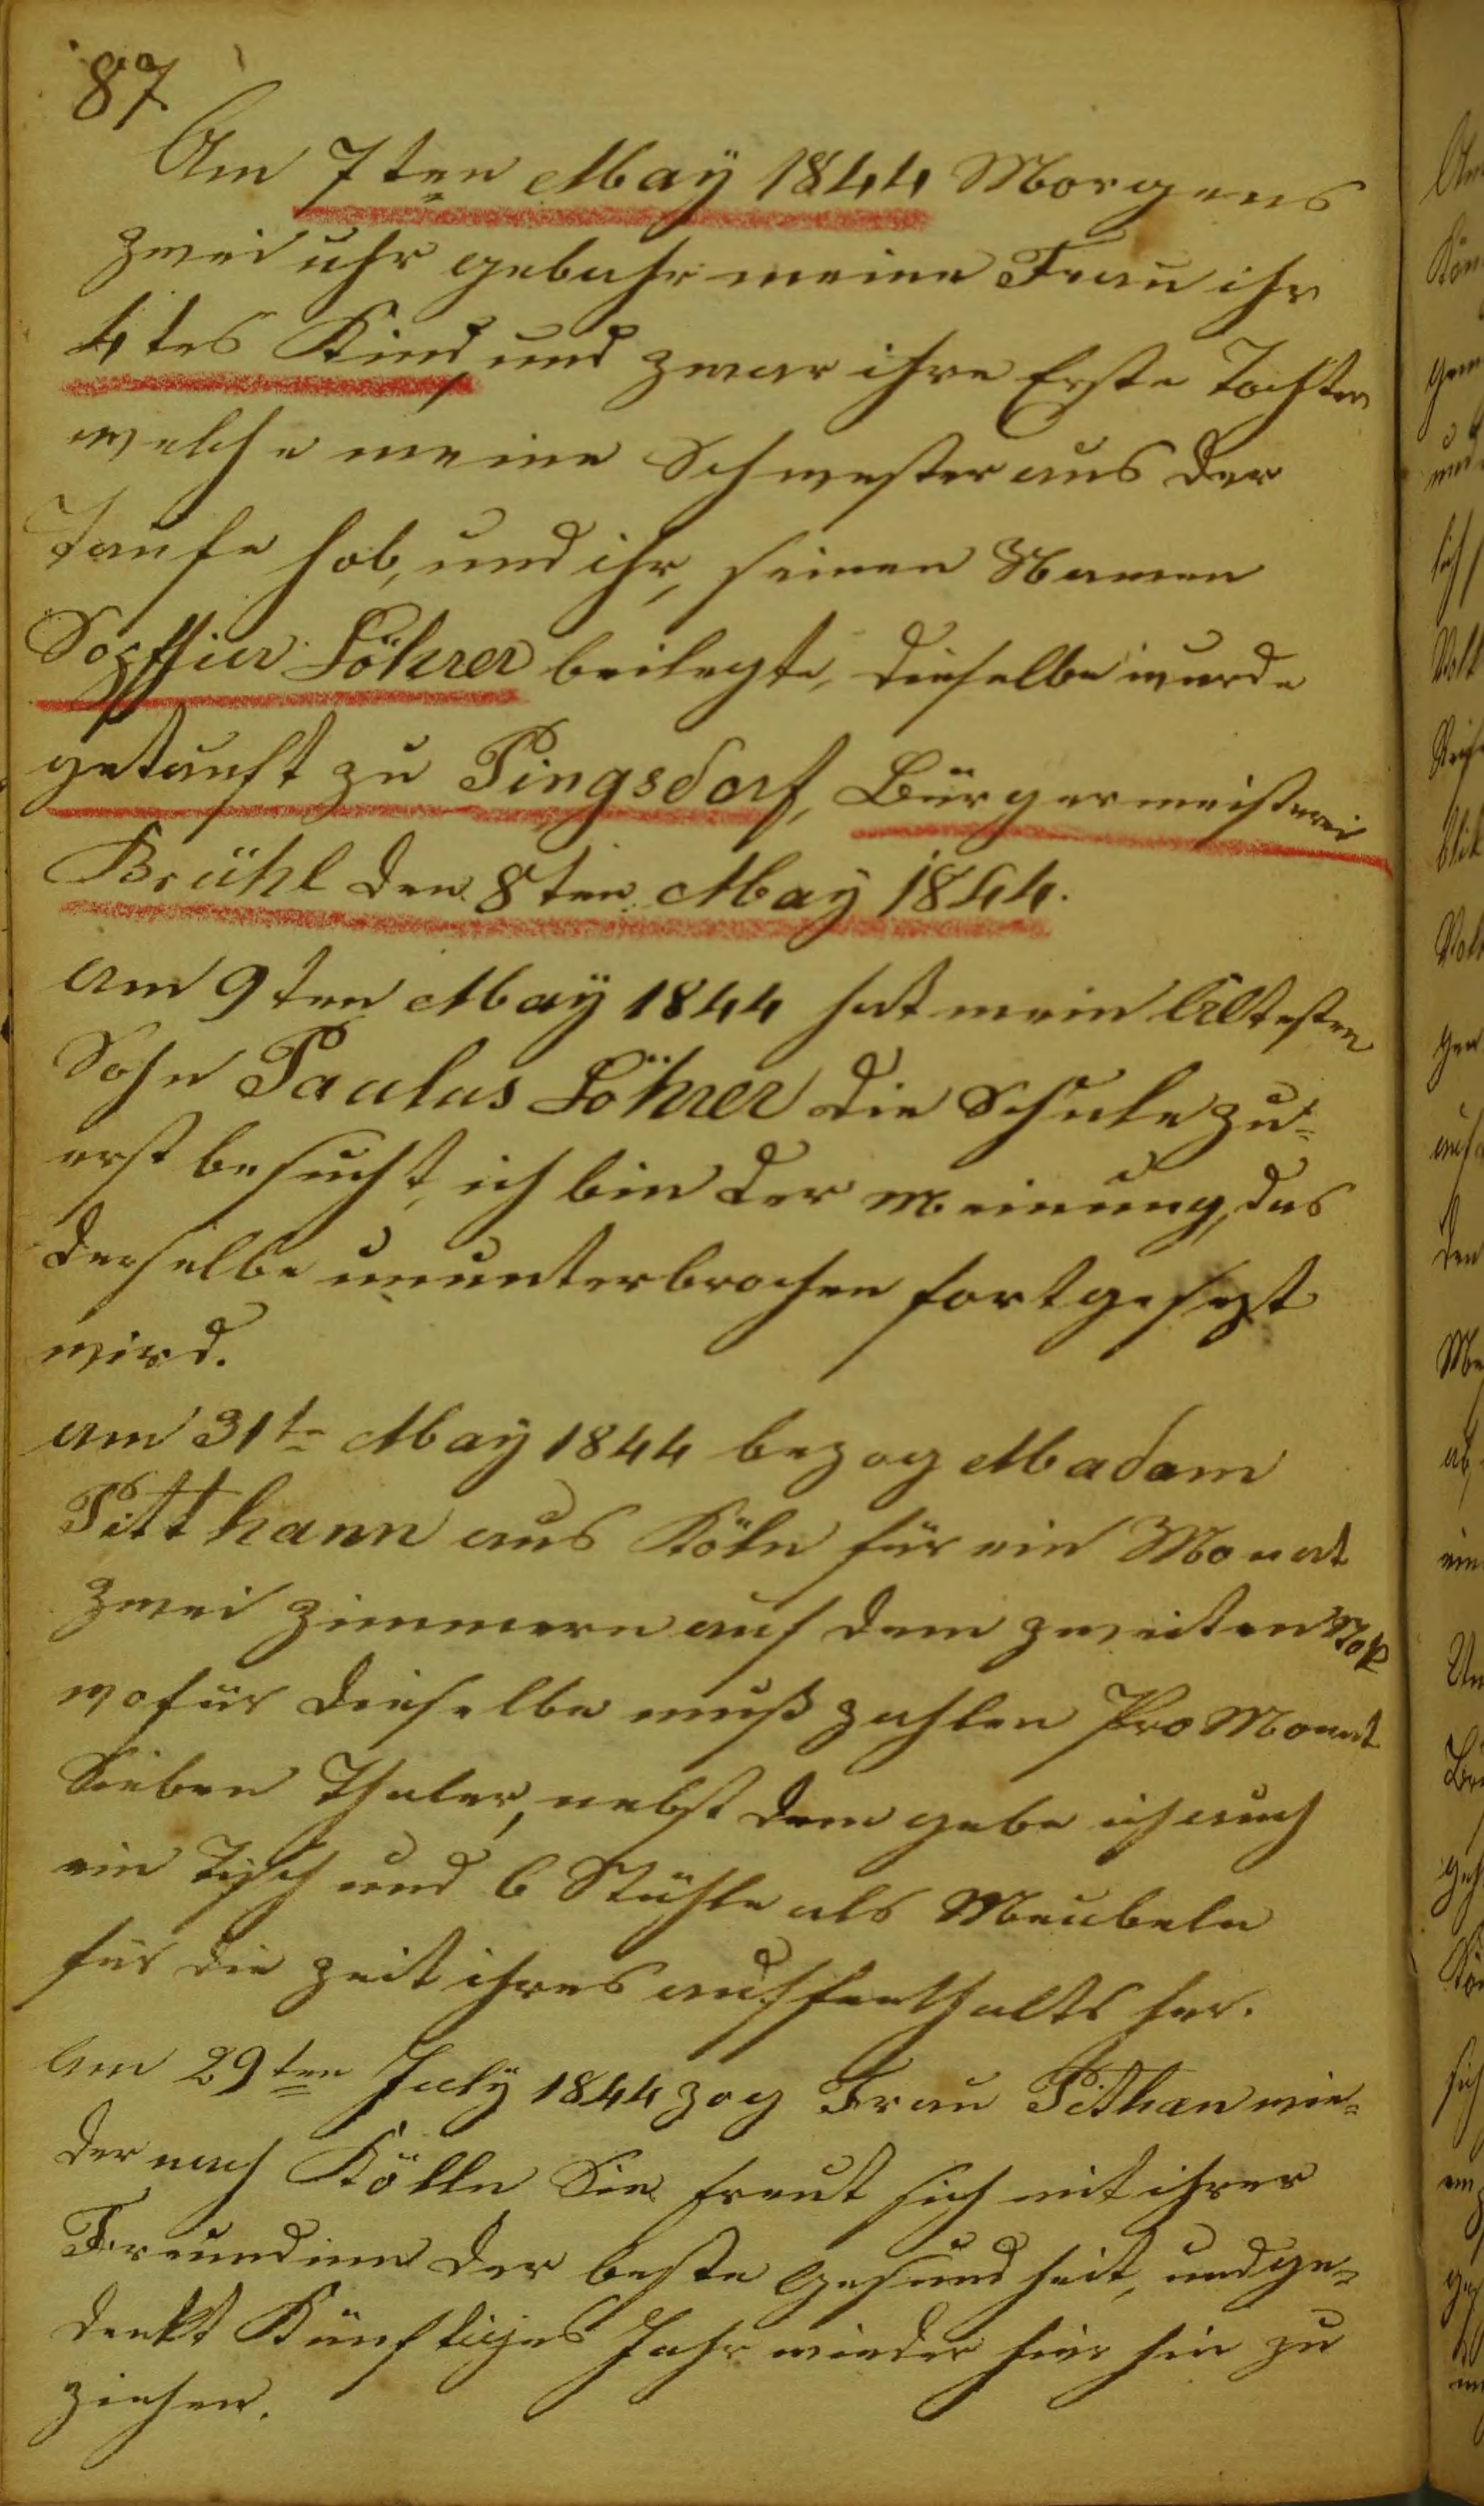 87
Am 7ten May 1844 Morgens
zwei uhr gebahr meine Frau ihr
4tes Kind, und zwar ihre Erste Tochter
welche meine Schwester aus der
Taufe hob, und ihr, seinen Namen
Sopffia Löhrer beilegte, dieselbe wurde
getauft zu Pingsdorf, Bürgermeisterei
Brühl den 8ten May 1844.
am 9ten May 1844 hat mein Ältesten
Sohn Paulus Löhrer die Schule zu=
erst besucht, ich bin der Meinung, das
derselbe ununterbrochen fortgesezt
wird.
am 31te May 1844 bezog Madam
Pitthann aus Köln für ein Monat
zwei Zimmern auf dem zweiten Stok
wofür dieselbe muß zahlen Pro Monat
Sieben Thaler, nebst dem gebe ich auch
ein Tisch und 6 Stühle als Meubeln
für die Zeit ihres auffenthalts her.
Am 29ten July 1844 zog Frau Pithan wie=
der nach Kölln Sie freut sich mit ihrer
Freundinn der beste Gesundheit, und ge=
denkt Künftiges Jahr wieder hier hin zu
ziehen.